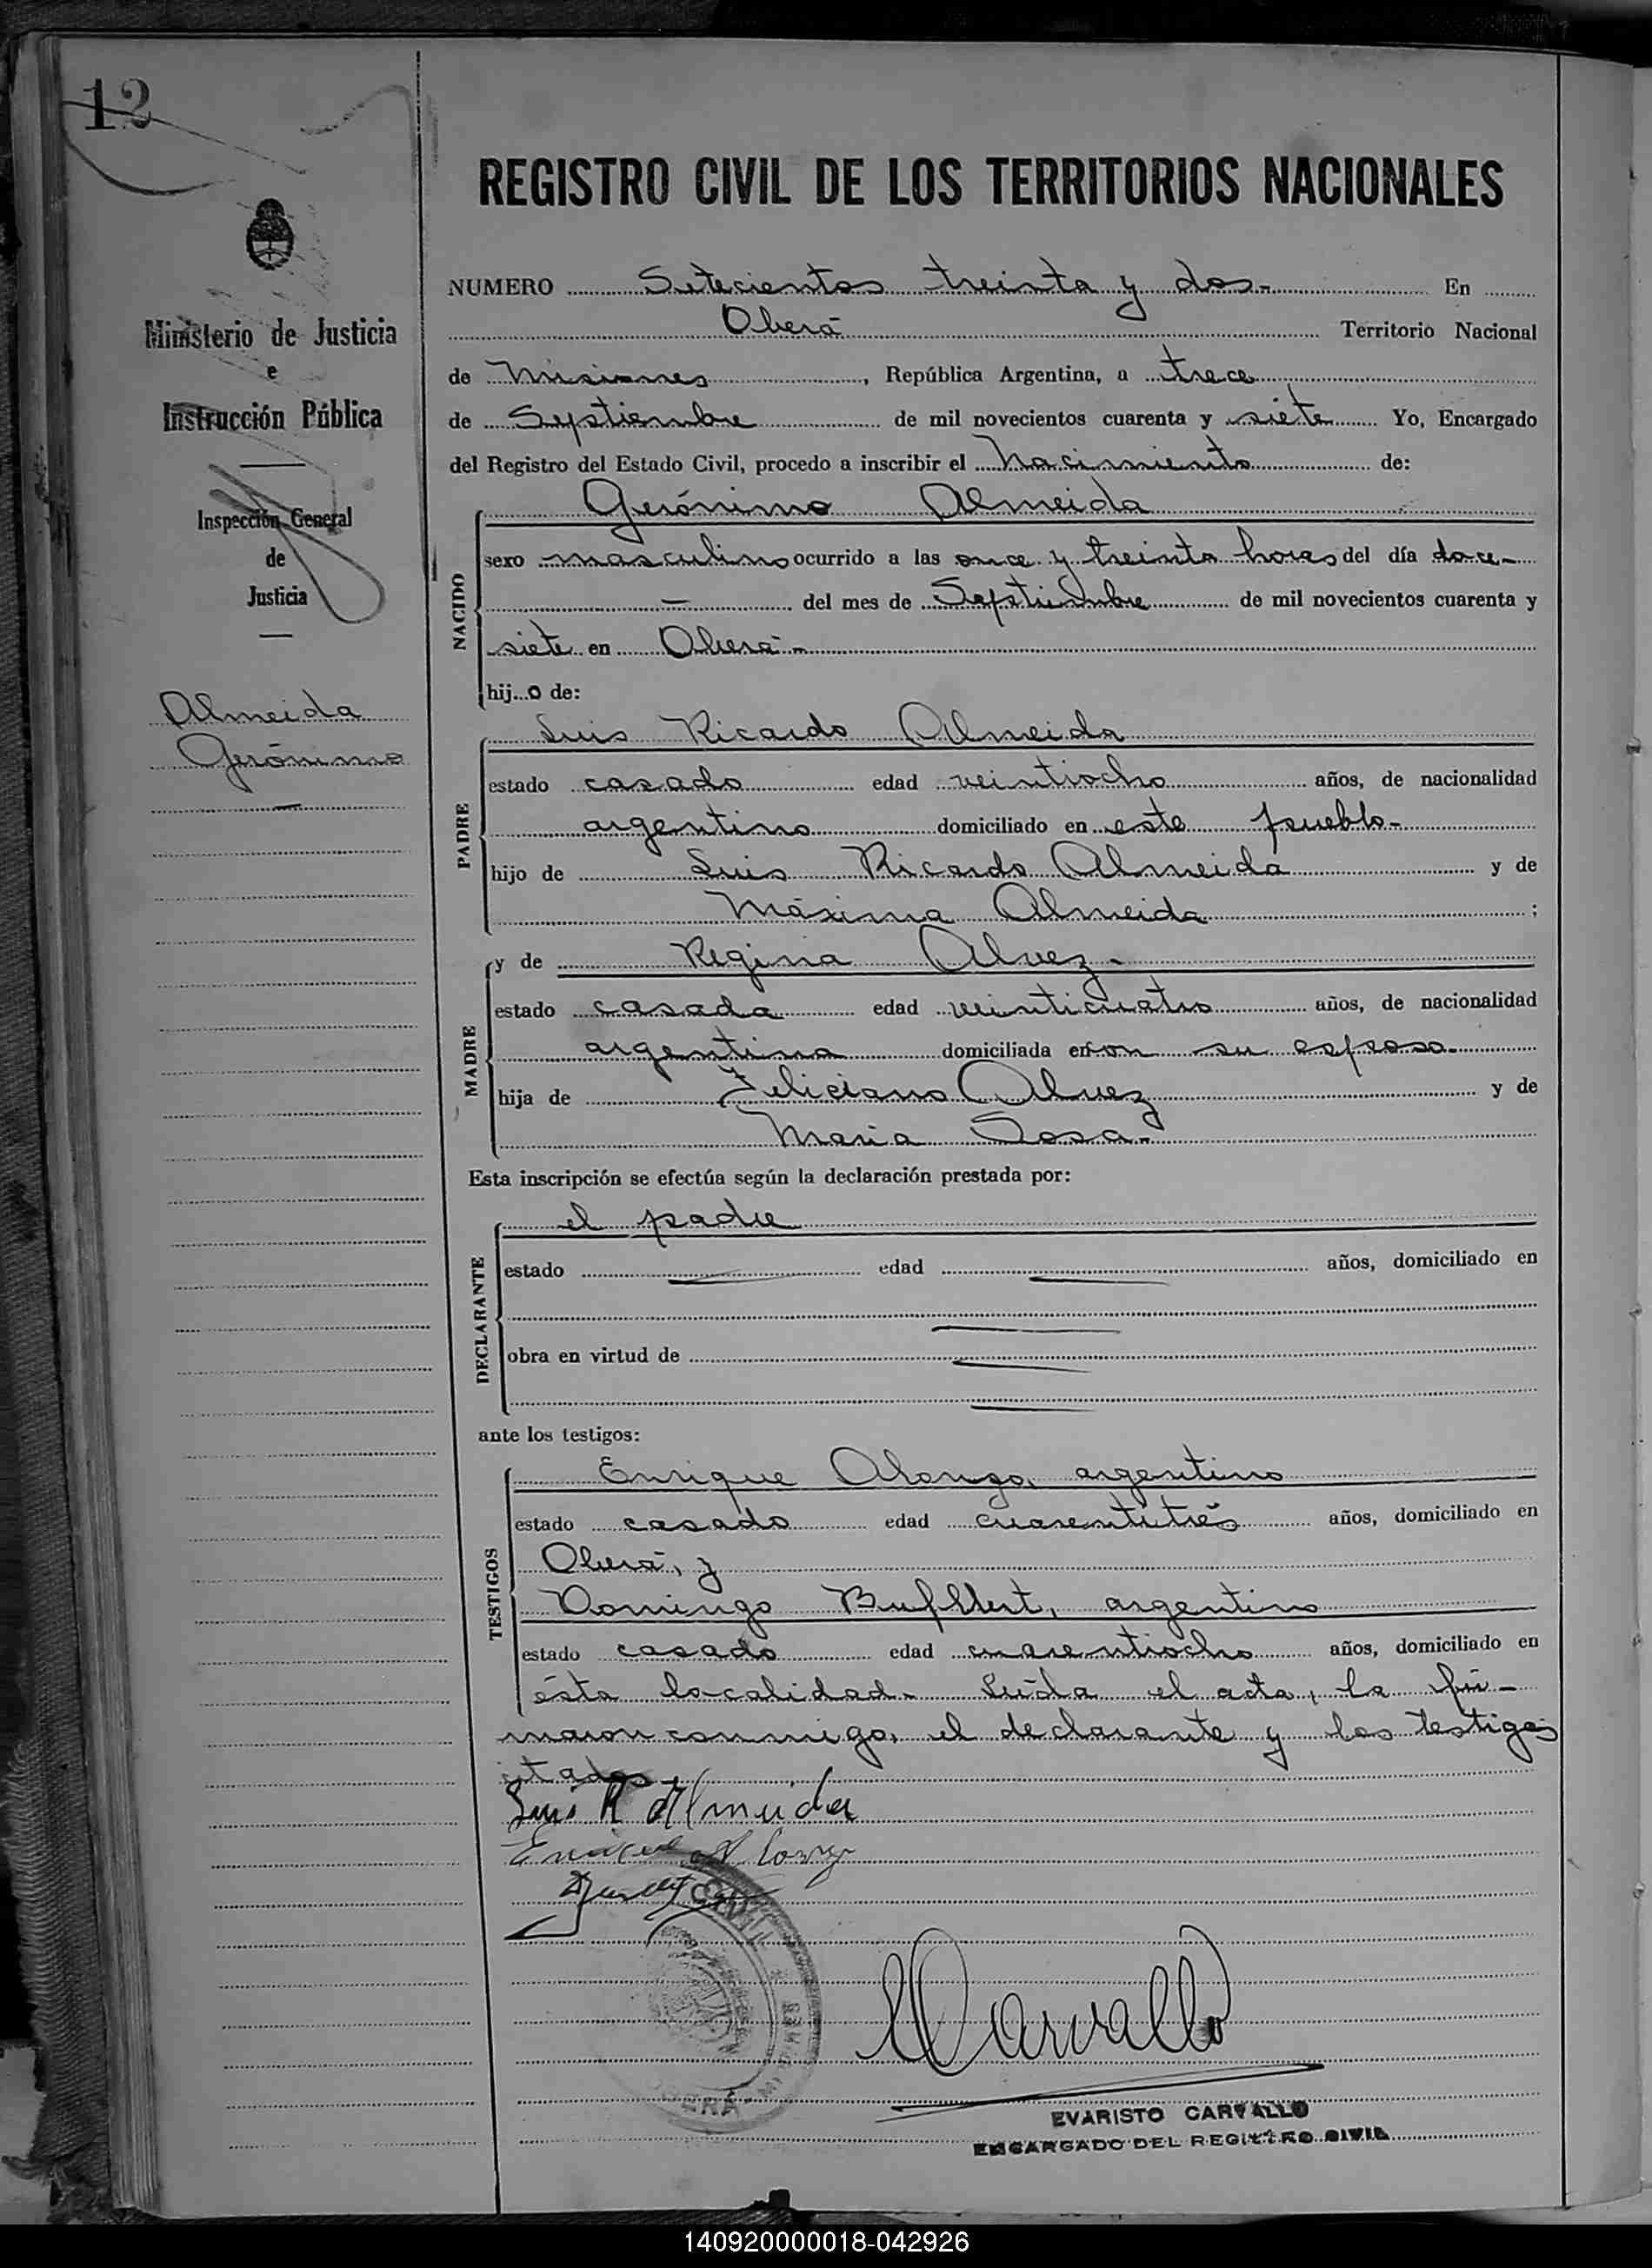 12
REGISTRO CIVIL DE LOS TERRITORIOS NACIONALES
Ministerio de Justicia
e
Instrucción Pública
Inspección General
de
Justicia
Almeida
Gerónimo
NUMERO Setecientos treinta y dos.- En
Oberá Territorio Nacional
de Misiones, República Argentina, a trece
de Septiembre de mil novecientos cuarenta y siete Yo, Encargado
del Registro del Estado Civil, procedo a inscribir el Nacimiento de:
NACIDO
Gerónimo Almeida
sexo masculino ocurrido a las once y treinta horas del día doce-
— del mes de Septiembre de mil novecientos cuarenta y
siete en Oberá-
hijo de:
PADRE
Luis Ricardo Almeida
estado casado edad veintiocho años, de nacionalidad
argentino domiciliado en este pueblo-
hijo de Luis Ricardo Almeida y de
Máxima Almeida ;
MADRE
y de Regina Alvez.
estado casada edad veinticuatro años, de nacionalidad
argentina domiciliada con su esposo.
hija de Feliciano Alvez y de
Maria Sosa.-
Esta inscripción se efectúa según la declaración prestada por:
DECLARANTE
el padre
estado edad años, domiciliado en
obra en virtud de
ante los testigos:
TESTIGOS
Enrique Alonzo, argentino
estado casado edad cuarentitrés años, domiciliado en
Oberá, y
Domingo argentino
estado casado edad cuarentiocho años, domiciliado en
ésta localidad. Leída el acta, la fir-
maron conmigo, el declarante y los testigos
citados.
Luis R Almeida
Enrique Alonzo
CIVIL
OBERÁ MISIONES
ECarvallo
EVARISTO CARVALLO
ENCARGADO DEL REGISTRO CIVIL
140920000018-042926